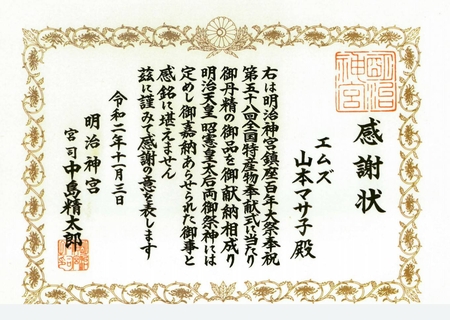 感謝状
エムズ
山本マサ子殿
右は明治神宮鎮座百年大祭奉祝
第五十八回全国特産物奉献式に当たり
御丹精の御品を御献納相成り
明治天皇昭憲皇太后両御祭神には
定めし御嘉納あらせられた御事と
感銘に堪えません
茲に謹みて感謝の意を表します
令和二年十一月三日
明治神宮
宮司中島精太郎
明治神宮